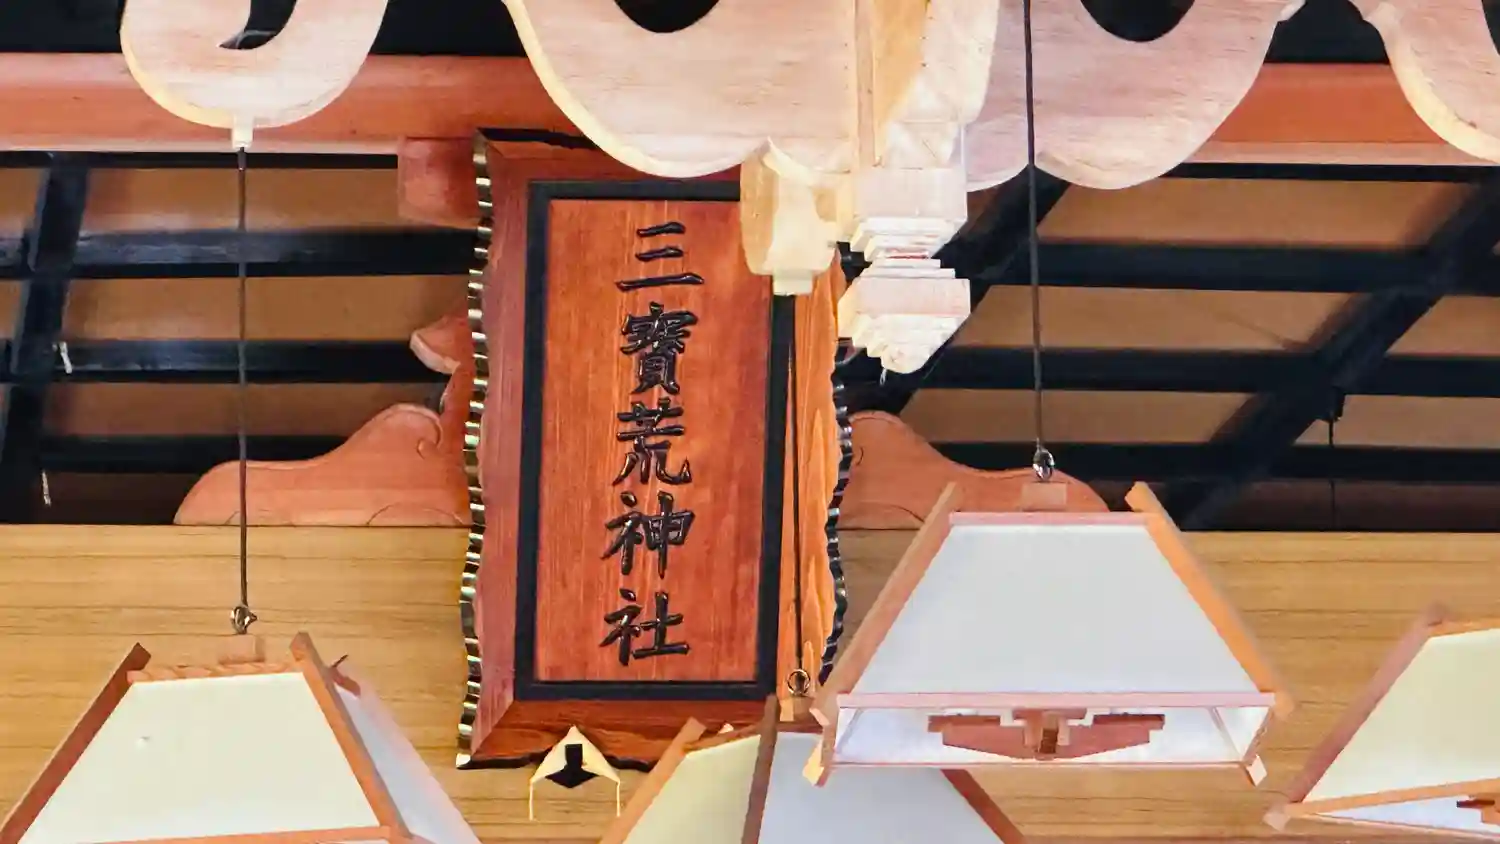 三寳荒神社